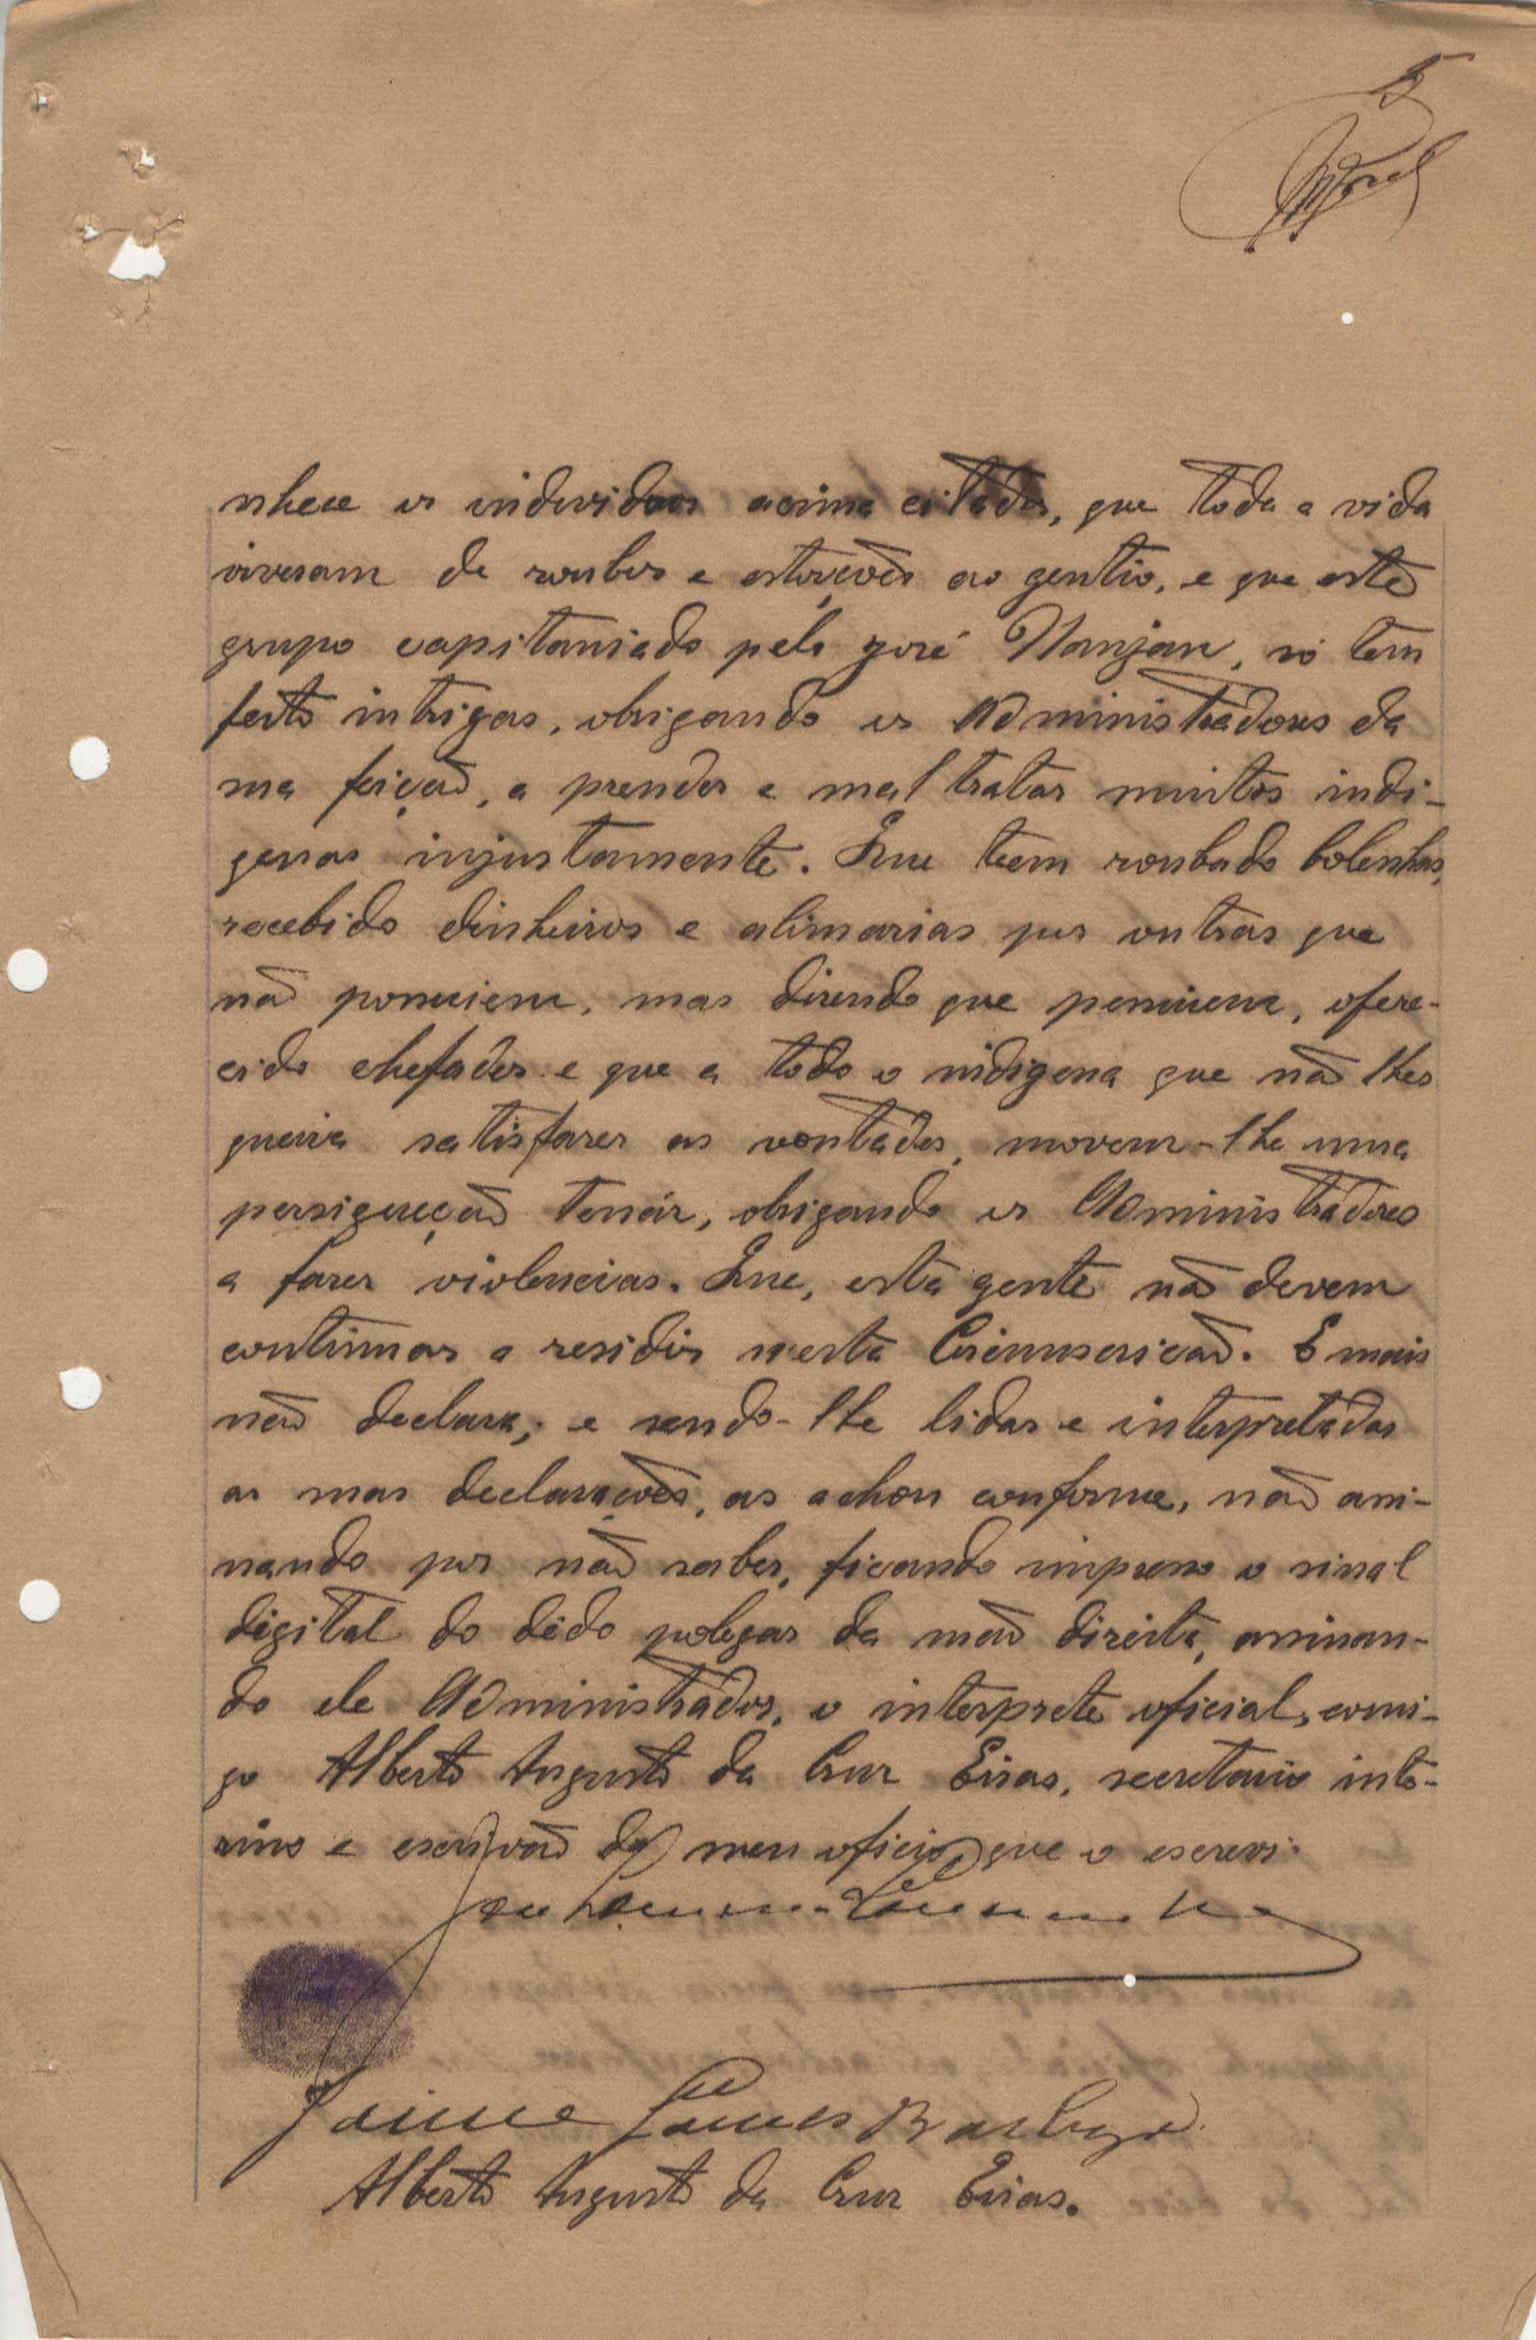 5
nhece os individuos acima citados, que toda a vida
viveram de roubos e estorções ao gentio, e que este
grupo capitaniado pelo José Nanjan, só tem
feito intrigas, obrigando os Administradores da
sua feição, a prender e mal tratar muitos indi-
genas injustamente. Que teem roubado bolanhas,
recebido dinheiros e alimarias por outras que
não possuiem, mas dizendo que possuiem, ofere-
cido chefados e que a todo o indigena que não lhes
queira satisfazer as vontades, movem-lhe uma
persigueção tenáz, obrigando os Administradores
a fazer violencias. Que, esta gente não devem
continuar a residir nesta Circunscrição. E mais
não declara; e sendo-lhe lidas e interpretadas
as suas declarações, as achou conforme, não assi-
nando por não saber, ficando impresso o sinal
digital do dedo polegar da mão direita, assinan-
do ele Administrador, o interprete oficial, comi-
go Alberto Augusto da Cruz Eiras, secretario inte-
rino e escrivão do meu oficio que o escrevi.
Jaime Gomes Barbosa.
Alberto Augusto da Cruz Eiras.